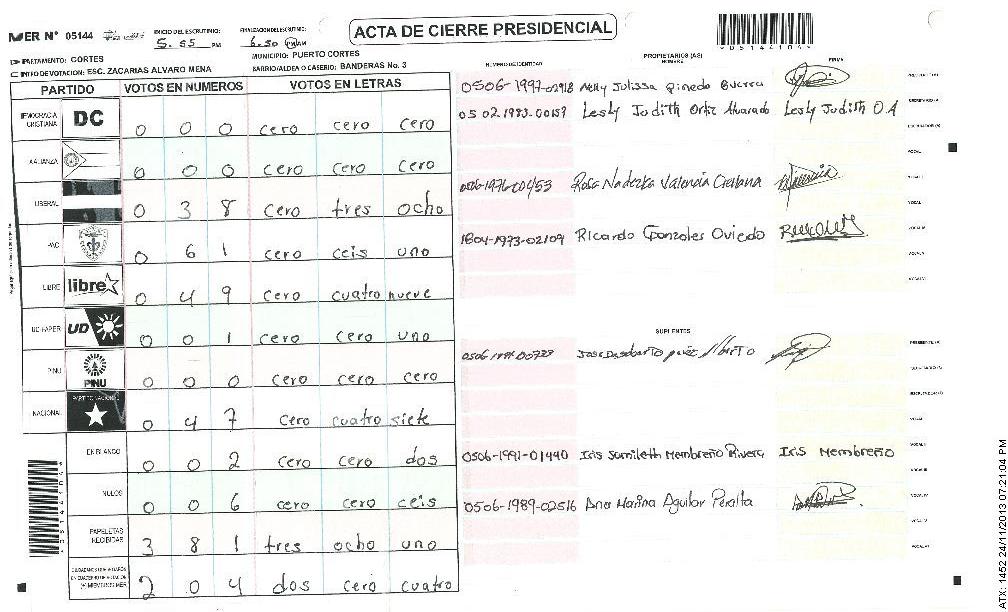 ACTA DE CIERRE PRESIDENCIAL
MER N° 05144
INICIO DEL ESCRUTINIO: 5.55 PM
FINALIZACION ESCRUTINIO: 6.50 PM AM
DEPARTAMENTO: CORTES
MUNICIPIO: PUERTO CORTES
CENTRO DE VOTACION: ESC. ZACARIAS ALVARO MENA
BARRIO/ALDEA O CASERIO: BANDERAS No. 3
PARTIDO VOTOS EN NUMEROS VOTOS EN LETRAS
DEMOCRACIA CRISTIANA DC 0 0 0 cero cero cero
ALIANZA 0 0 0 cero cero cero
LIBERAL 0 3 8 cero tres ocho
PAC 0 6 1 cero ceis uno
LIBRE libre 0 4 9 cero cuatro nueve
UD-FAPER UD 0 0 1 cero cero uno
PINU PINU 0 0 0 cero cero cero
NACIONAL PARTIDO NACIONAL 0 4 7 cero cuatro siete
EN BLANCO 0 0 2 cero cero dos
NULOS 0 0 6 cero cero ceis
PAPELETAS RECIBIDAS 3 8 1 tres ocho uno
2 0 4 dos cero cuatro
NUMERO DE IDENTIDAD PROPIETARIOS (AS) NOMBRE FIRMA
0506-1997-02918 Nelly Julissa Pineda Guerra
0502-1983-00159 Lesly Judith Ortiz Alvarado Lesly Judith O A
0506-1976-00453 Rosa Nadezka Valencia
1804-1973-02109 Ricardo Gonzoles Oviedo
SUPLENTES
0506-1991-01440 Iris Sumileth Membreño Rivera Iris Membreño
0506-1989-02516 Ana Marina Aguilar Peralta
0514410４
ATX: 1452 24/11/2013 07:21:04 PM